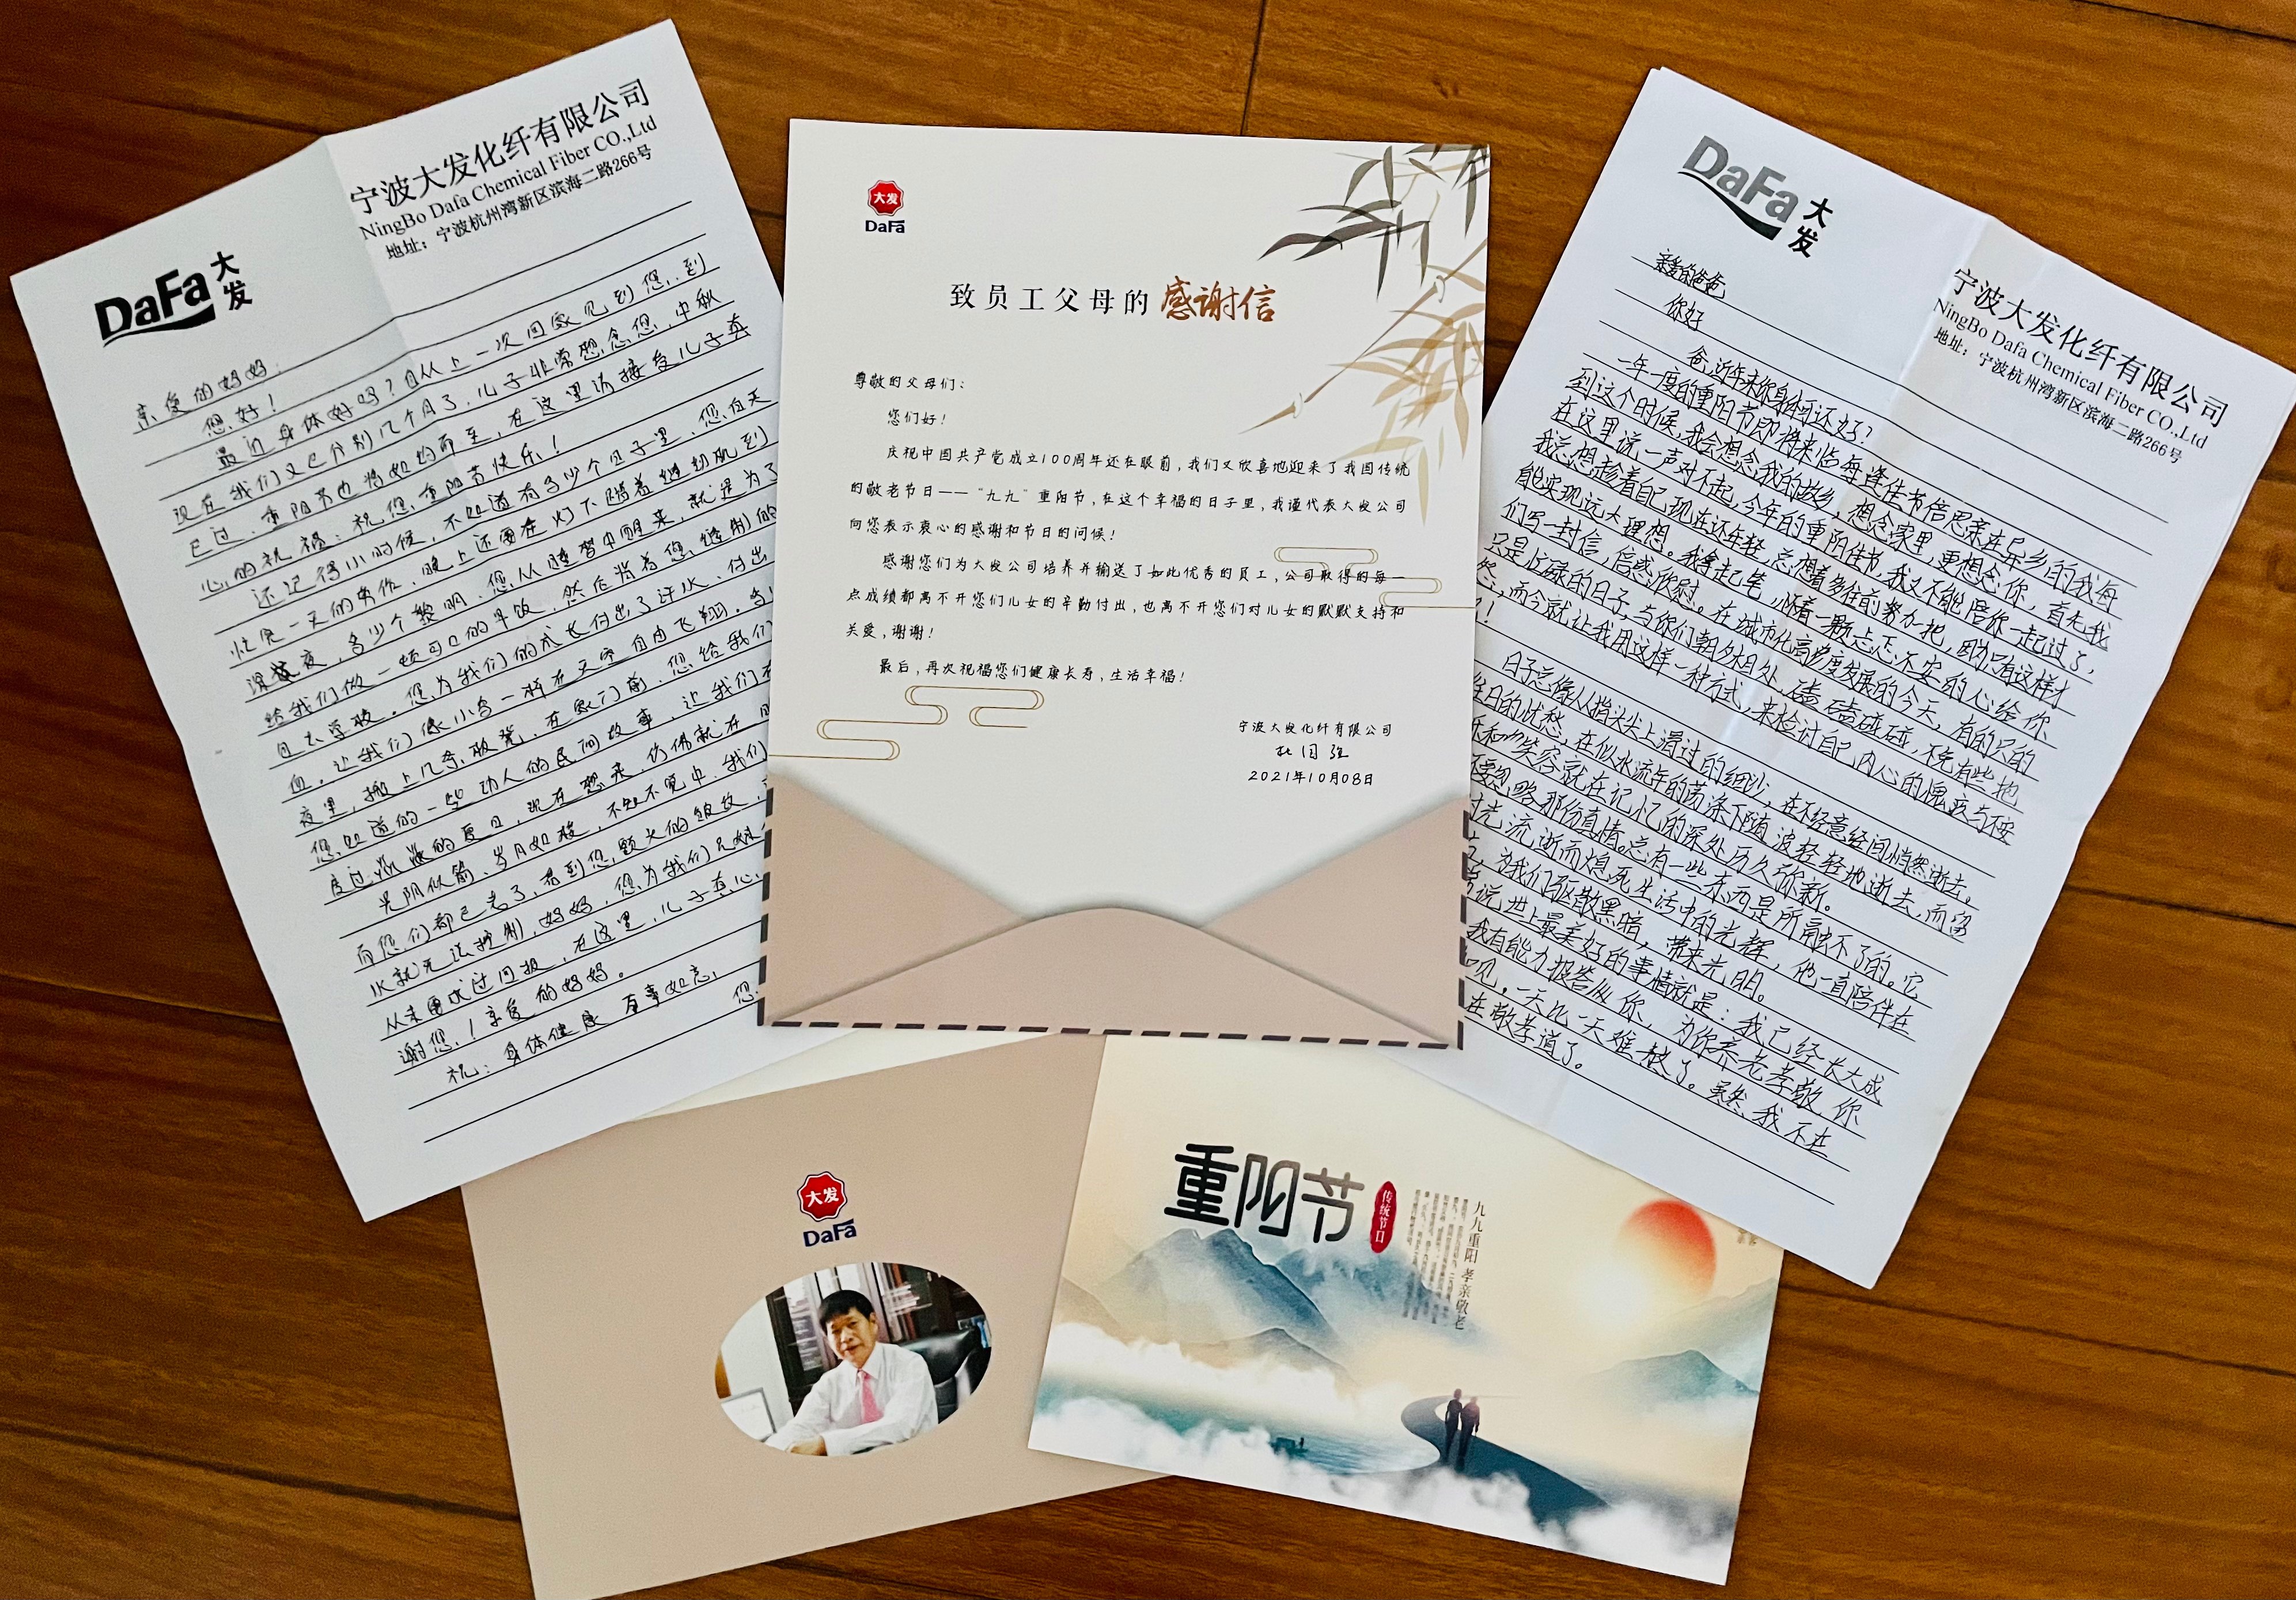 DaFa 大发
宁波大发化纤有限公司
NingBo Dafa Chemical Fiber CO.,Ltd
地址：宁波杭州湾新区滨海二路266号
亲爱的妈妈：
您好！
最近身体好吗？自从上一次回家见到您，到
现在我们又已分别几个月了，儿子非常想念您，中秋
已过，重阳节也将如约而至，在这里请接受儿子真
心的祝福：祝您，重阳节快乐！
还记得小时候，不知道有多少个日子里，您白天
忙完一天的劳作，晚上还要在灯下踏着缝纫机到
深夜，多少个黎明，您从睡梦中醒来，就是为了
给我们做一顿可口的早饭，然后背着您缝制的
自去学校。您为我们的成长付出了汗水，付出
血，让我们像小鸟一样在天空自由飞翔。
夜里，搬上几条板凳，在家门前，您给我们
您知道的一些动人的民间故事，让我们
度过炎炎的夏日，现在想来，仿佛就在
光阴似箭，岁月如梭，不知不觉中，我们
而您们都已老了，看到您额头的皱纹，
水就无法控制，妈妈，您为我们兄妹
从未要求过回报，在这里，儿子真心
谢您！亲爱的妈妈。
祝：身体健康 百事如意，
您
大发
DaFa
致员工父母的感谢信
尊敬的父母们：
您们好！
庆祝中国共产党成立100周年还在眼前，我们又欣喜地迎来了我国传统
的敬老节日——“九九”重阳节，在这个幸福的日子里，我谨代表大发公司
向您表示衷心的感谢和节日的问候！
感谢您们为大发公司培养并输送了如此优秀的员工，公司取得的每一
点成绩都离不开您们儿女的辛勤付出，也离不开您们对儿女的默默支持和
关爱，谢谢！
最后，再次祝福您们健康长寿，生活幸福！
宁波大发化纤有限公司
杜国强
2021年10月08日
DaFa 大发
宁波大发化纤有限公司
NingBo Dafa Chemical Fiber CO.,Ltd
地址：宁波杭州湾新区滨海二路266号
亲爱的爸爸
你好
爸，近年来你身体可还好？
一年一度的重阳节即将来临，每逢佳节倍思亲，在异乡的我每
到这个时候，我会想念我的故乡，想念家里，更想念你，首先我
在这里说一声对不起，今年的重阳佳节，我又不能陪你一起过了，
我总想趁着自己现在还年轻，总想着多往前努力把，因为只有这样才
能实现远大理想。我拿起笔，怀着一颗忐忑不安的心给你
们写一封信，信感你慰。在城市化高步度发展的今天，有的只的
只是忙碌的日子，与你们朝夕相处，磕磕碰碰，不免有些地
然，而今就让我用这样一种方式，来检讨自己内心的愧疚与不安
！
日子总像从指尖上滑过的细沙，在不经意经间悄然逝去。
往日的忧愁，在似水流年的荡涤下随波轻轻地逝去，而留
和笑容就在记忆的深处历久弥新。
要忽略那份真情。总有一些东西是所融不了的。它
时光流逝而熄死生活中的光辉，他一直陪伴在
为我们驱散黑暗，带来光明。
说世上最美好的事情就是：我已经长大成
我有能力报答你，为你养老孝敬你
一天比一天难熬了。虽然我不在
在敬孝道了。
大发
DaFa
重阳节
传统节日
九九重阳 孝亲敬老